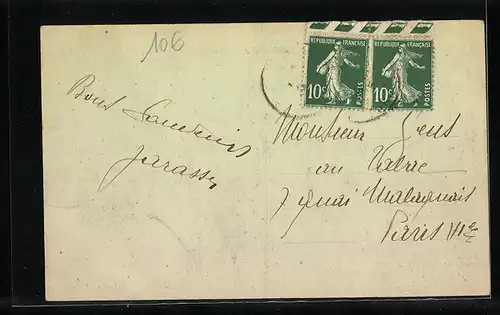 106
REPUBLIQUE FRANÇAISE
10c
POSTES
REPUBLIQUE FRANÇAISE
10c
POSTES
Bons Souvenirs
Monsieur
au
7 quai Malaquais
Paris VIe